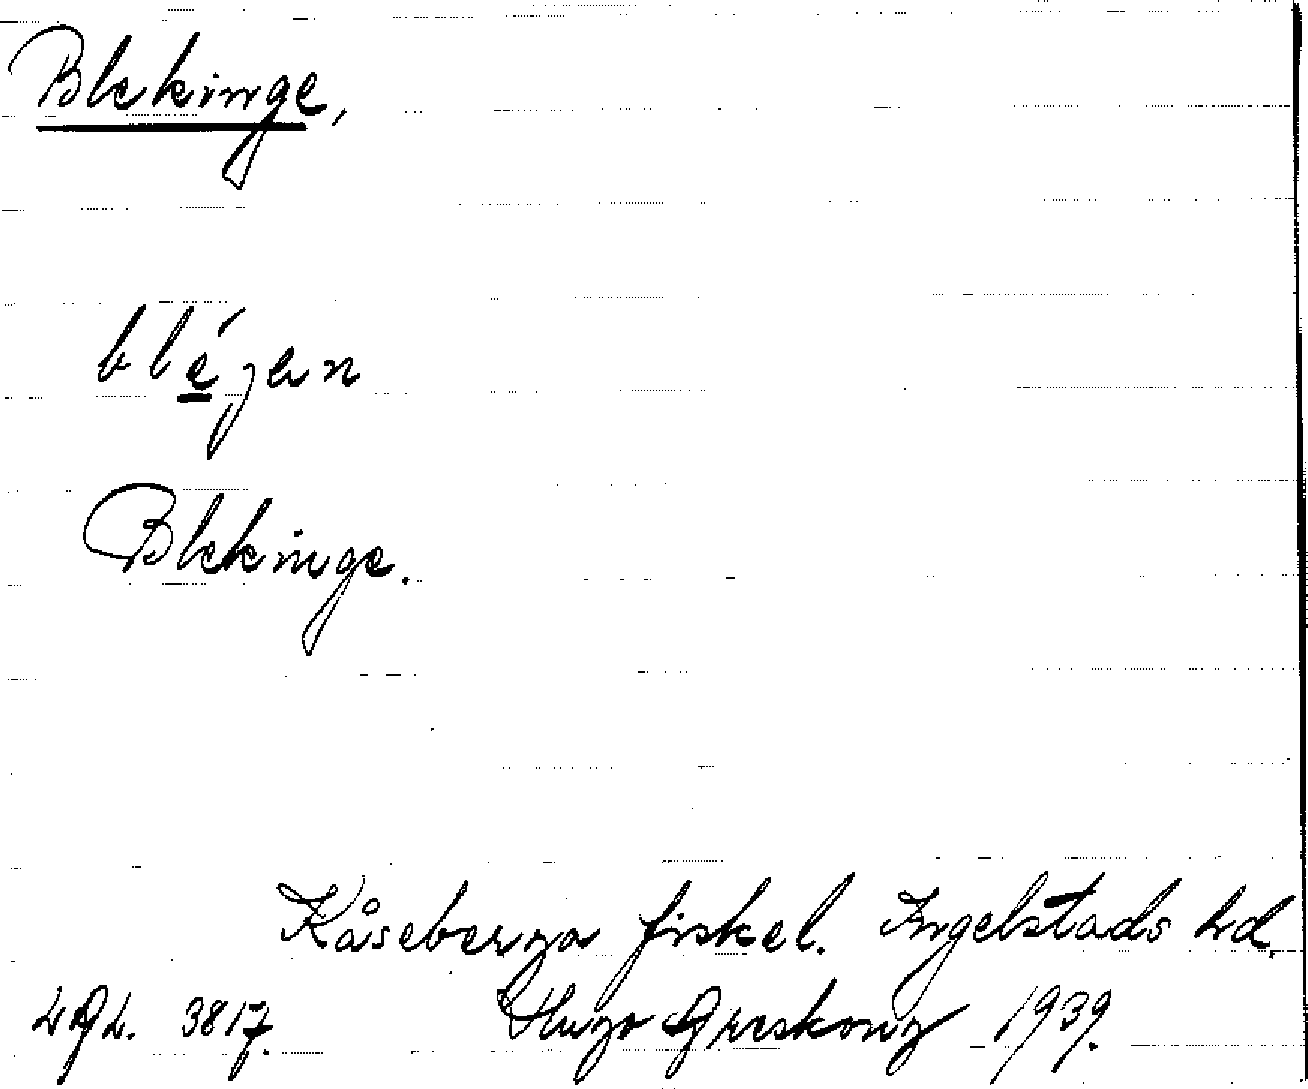 Blekinge,
blé̱gen
Blekinge.
Kåseberga fiskel. Ingelstads hd.
3817. Hugo Areskoug 1939.